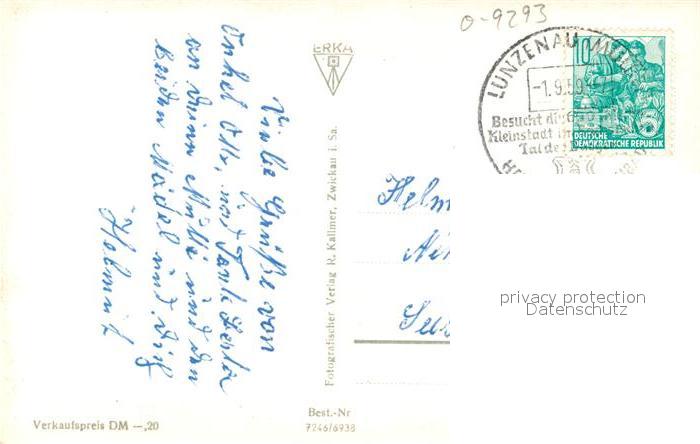 o-9293
ERKA
LUNZENAU (MULDE
-1.9.59
Besucht die
Kleinstadt im
Tal de
10
5
DEUTSCHE
DEMOKRATISCHE REPUBLIK
Viele Grüße von
Onkel Otto, und Tante Herta
an deine Mutti und den
beiden Mädel und Dich
Helmut
Fotografischer Verlag R. Kallmer, Zwickau i. Sa.
Helm
privacy protection
Datenschutz
Verkaufspreis DM —,20
Best.-Nr
7246/6938